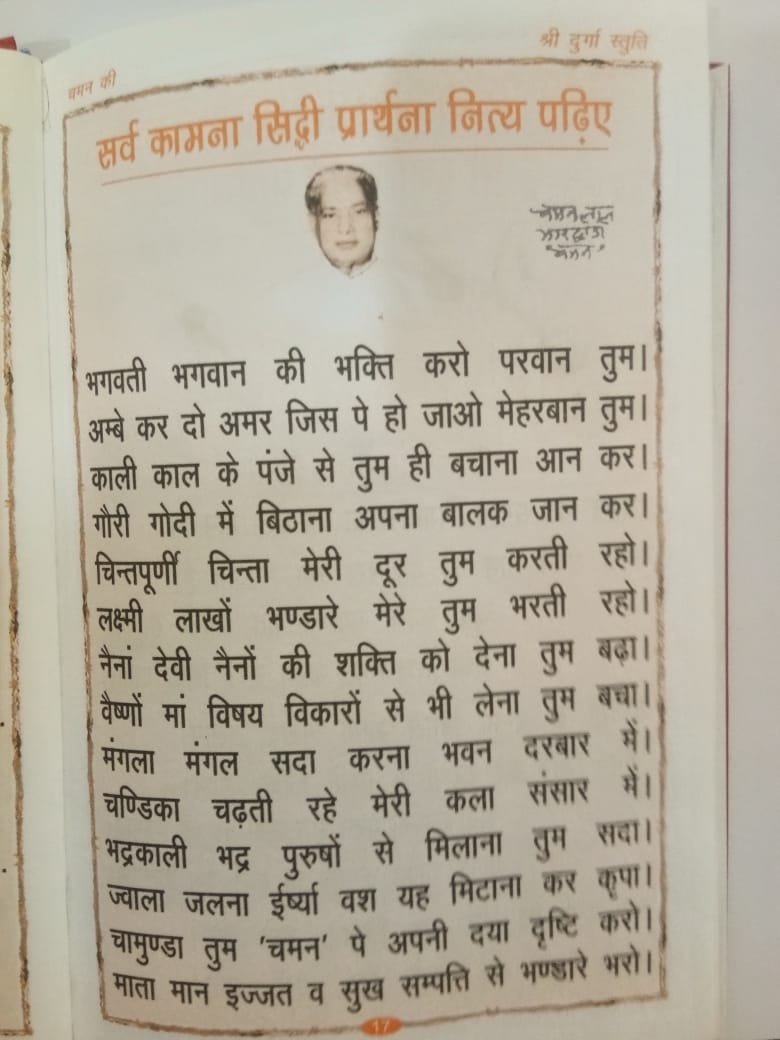 चमन की
श्री दुर्गा स्तुति
सर्व कामना सिद्धी प्रार्थना नित्य पढ़िए
चमनलाल
भारद्वाज
"चमन"
भगवती भगवान की भक्ति करो परवान तुम।
अम्बे कर दो अमर जिस पे हो जाओ मेहरबान तुम।
काली काल के पंजे से तुम ही बचाना आन कर।
गौरी गोदी में बिठाना अपना बालक जान कर।
चिन्तपूर्णी चिन्ता मेरी दूर तुम करती रहो।
लक्ष्मी लाखों भण्डारे मेरे तुम भरती रहो।
नैनां देवी नैनों की शक्ति को देना तुम बढ़ा।
वैष्णों मां विषय विकारों से भी लेना तुम बचा।
मंगला मंगल सदा करना भवन दरबार में।
चण्डिका चढ़ती रहे मेरी कला संसार में।
भद्रकाली भद्र पुरुषों से मिलाना तुम सदा।
ज्वाला जलना ईर्ष्या वश यह मिटाना कर कृपा।
चामुण्डा तुम 'चमन' पे अपनी दया दृष्टि करो।
माता मान इज्जत व सुख सम्पत्ति से भण्डारे भरो।
17